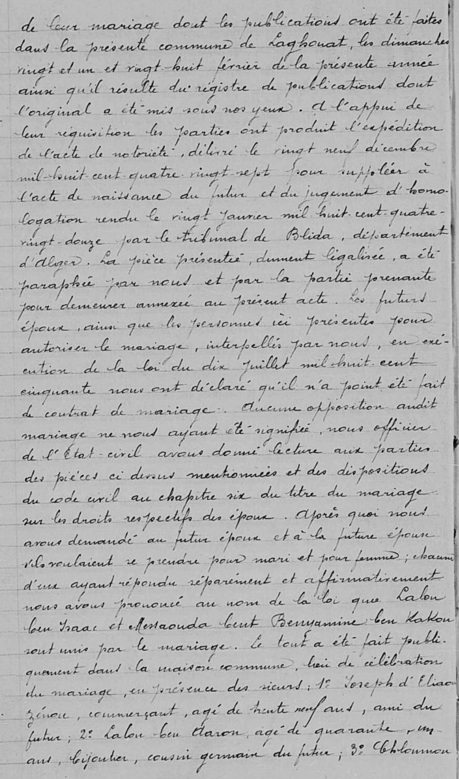 de leur mariage dont les publications ont été faites
dans la présente commune de Laghouat, les dimanches
vingt et un et vingt-huit février de la présente année
ainsi qu'il résulte du registre de publications dont
l'original a été mis sous nos yeux. A l'appui de
leur réquisition les parties ont produit l'expédition
de l'acte de notoriété, délivré le vingt neuf décembre
mil-huit-cent quatre vingt-sept pour suppléer à
l'acte de naissance du futur et du jugement d'homo-
logation rendu le vingt janvier mil huit-cent-quatre-
vingt-douze par le tribunal de Blida, département
d'Alger. La pièce présentée, dument légalisée, a été
paraphée par nous et par la partie prenante
pour demeurer annexée au présent acte. Les futurs
époux, ainsi que les personnes ici présentes pour
autoriser le mariage, interpellés par nous, en exé-
cution de la loi du dix juillet mil-huit cent
cinquante nous ont déclaré qu'il n'a point été fait
de contrat de mariage. Aucune opposition audit
mariage ne nous ayant été signifiée, nous officier
de l'Etat-civil avons donné lecture aux parties
des pièces ci dessus mentionnées et des dispositions
du code civil au chapitre six du titre du mariage
sur les droits respectifs des époux. Après quoi nous
avons demandé au futur époux et à la future épouse
s'ils voulaient se prendre pour mari et pour femme; chacun
d'eux ayant répondu séparément et affirmativement
nous avons prononcé au nom de la loi que Lalou
ben Isaac et Messaouda bent Benyamine ben Kakou
sont unis par le mariage. Le tout a été fait publi-
quement dans la maison commune, lieu de célébration
du mariage, en présence des sieurs: 1º Joseph d'Eliaou
Zénou, commerçant, agé de trente neuf ans, ami du
futur; 2º Lalou ben Aaron, agé de quarante un
ans, bijoutier, cousin germain du futur; 3º